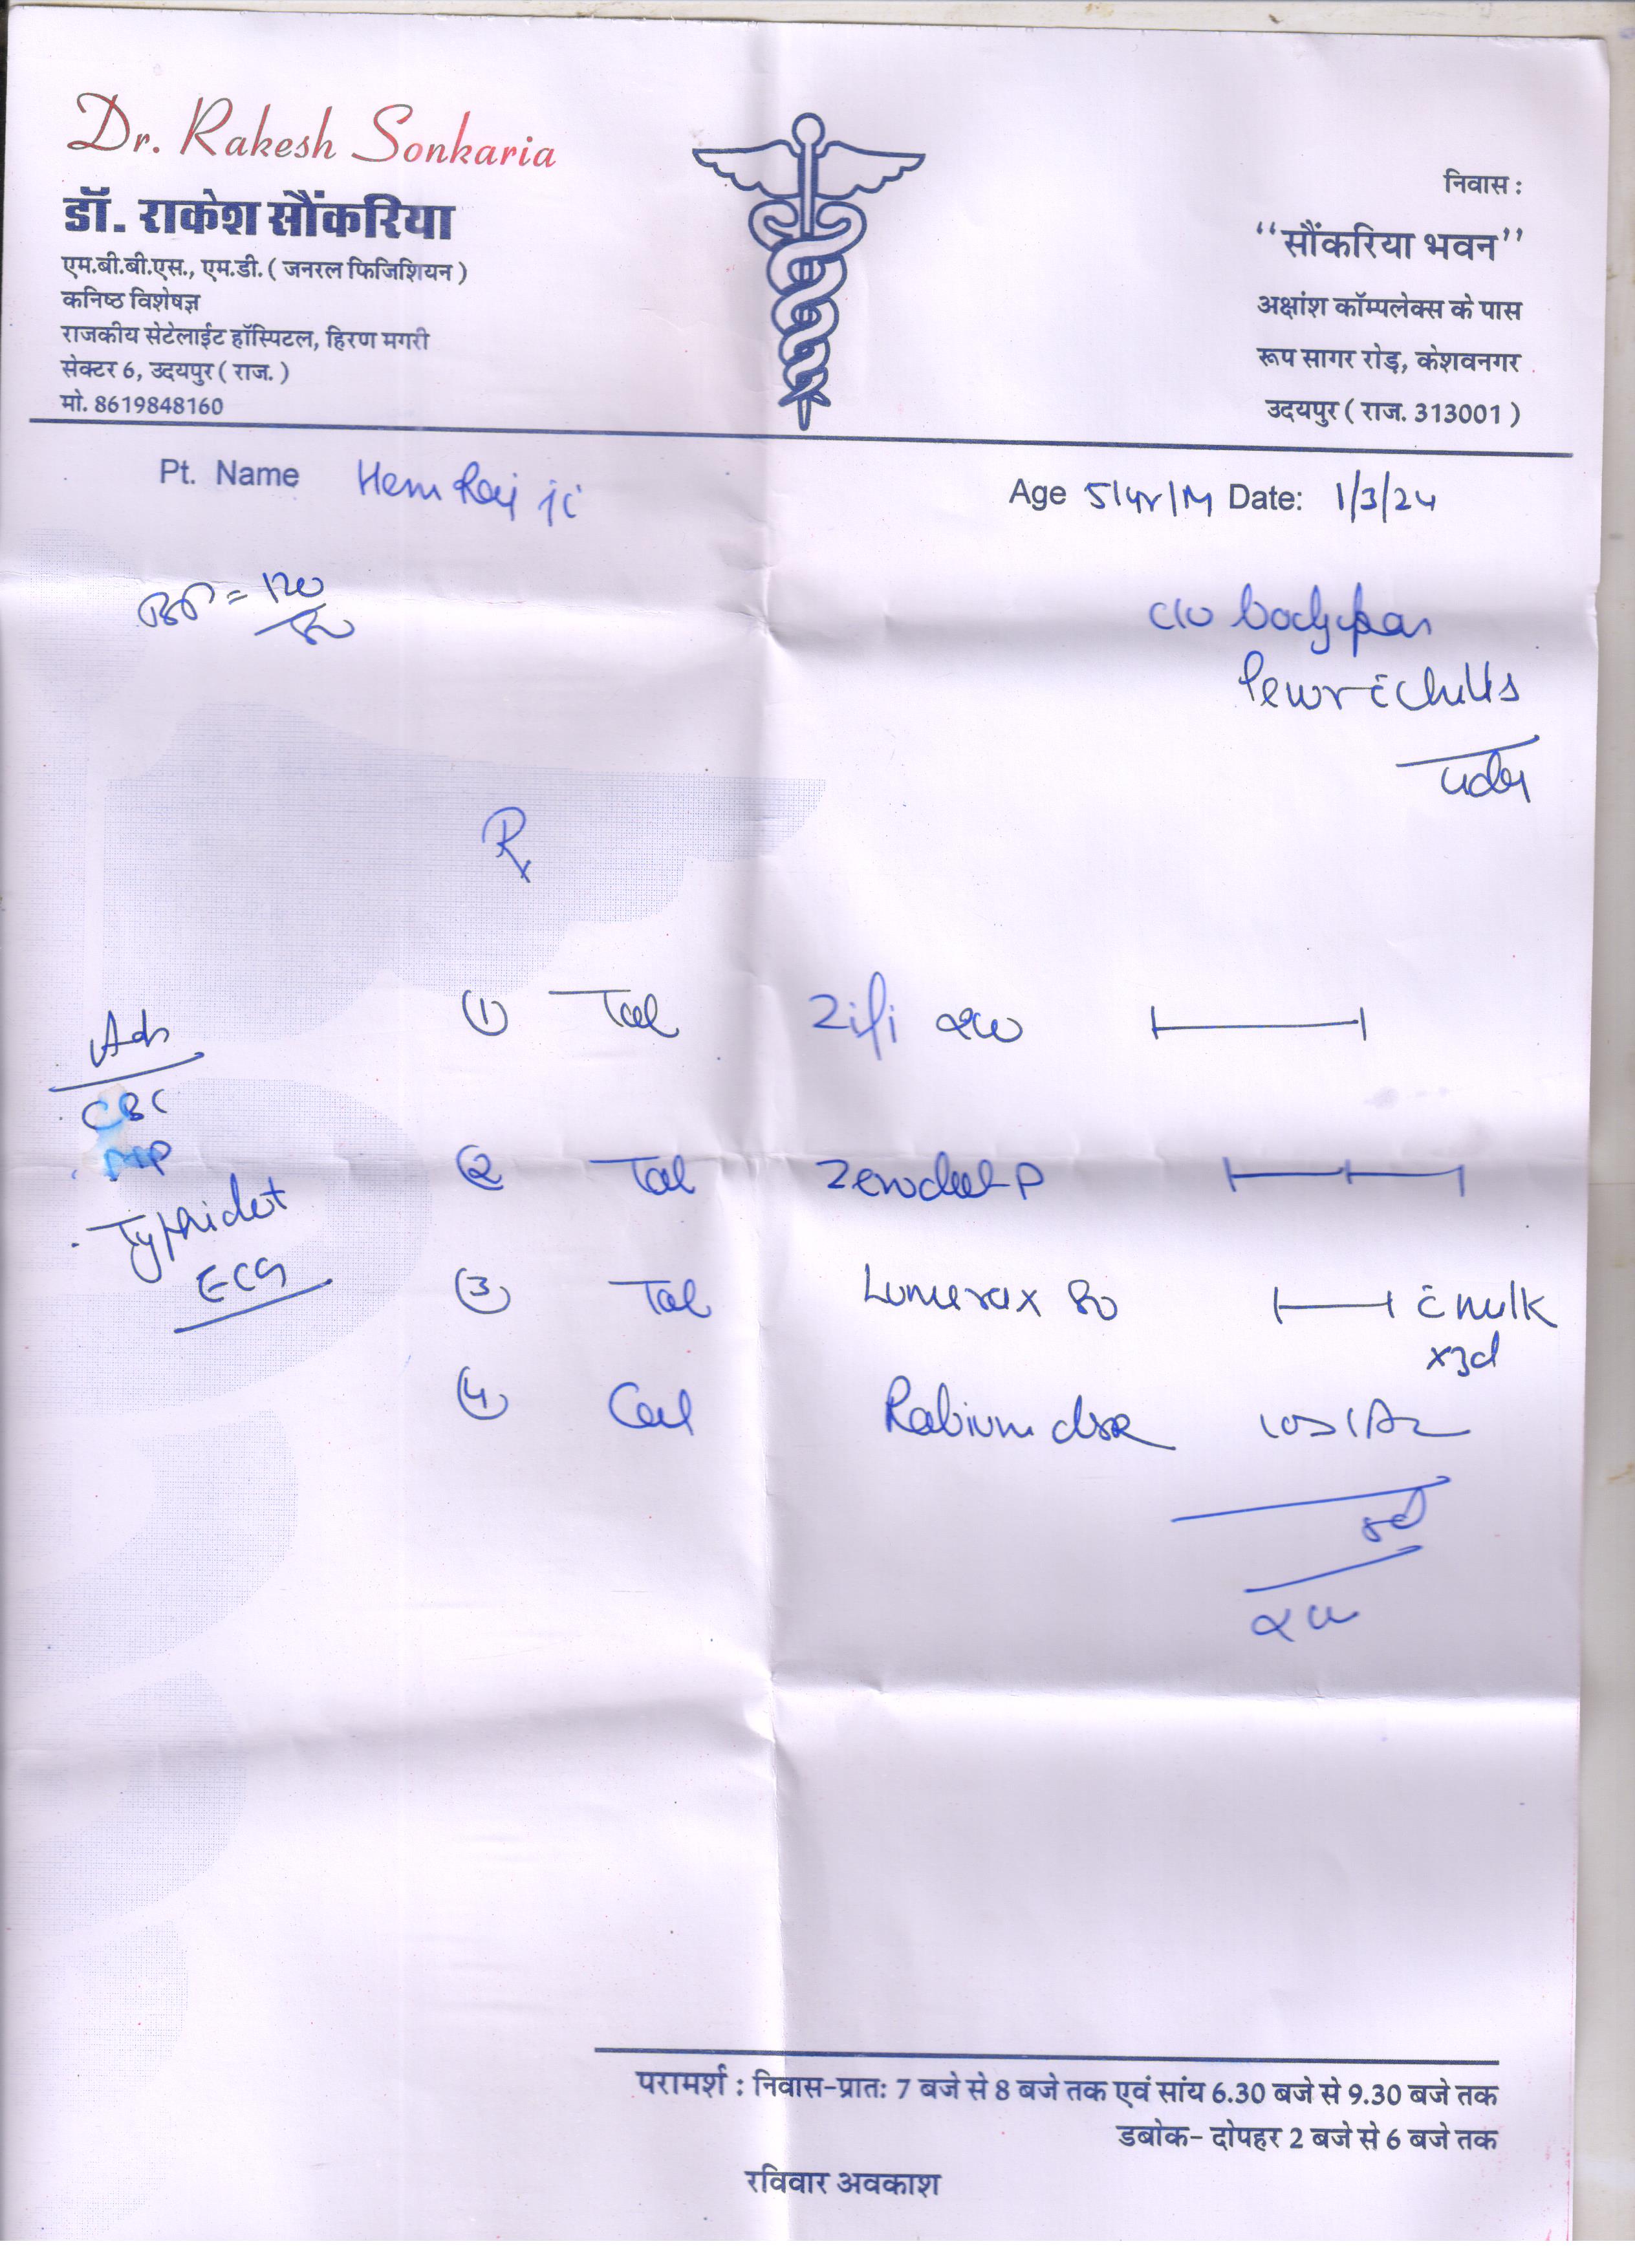 Dr. Rakesh Sonkaria
डॉ. राकेश सौंकरिया
एम.बी.बी.एस., एम.डी. ( जनरल फिजिशियन )
कनिष्ठ विशेषज्ञ
राजकीय सेटेलाईट हॉस्पिटल, हिरण मगरी
सेक्टर 6, उदयपुर ( राज. )
मो. 8619848160
निवास :
“सौंकरिया भवन”
अक्षांश कॉम्पलेक्स के पास
रूप सागर रोड़, केशवनगर
उदयपुर ( राज. 313001 )
Pt. Name Hem Raj ji
Age 51yr/M Date: 1/3/24
BP = 120/80
c/o body pain
fever c̄ chills
Rx
Adv
CBC
MP
Typhidot
ECG
① Tab Zifi 200
② Tab Zerodol-P
③ Tab Lumerax 80 c̄ milk
x3d
④ Cap Rabium dsr
परामर्श : निवास-प्रातः 7 बजे से 8 बजे तक एवं सांय 6.30 बजे से 9.30 बजे तक
डबोक- दोपहर 2 बजे से 6 बजे तक
रविवार अवकाश